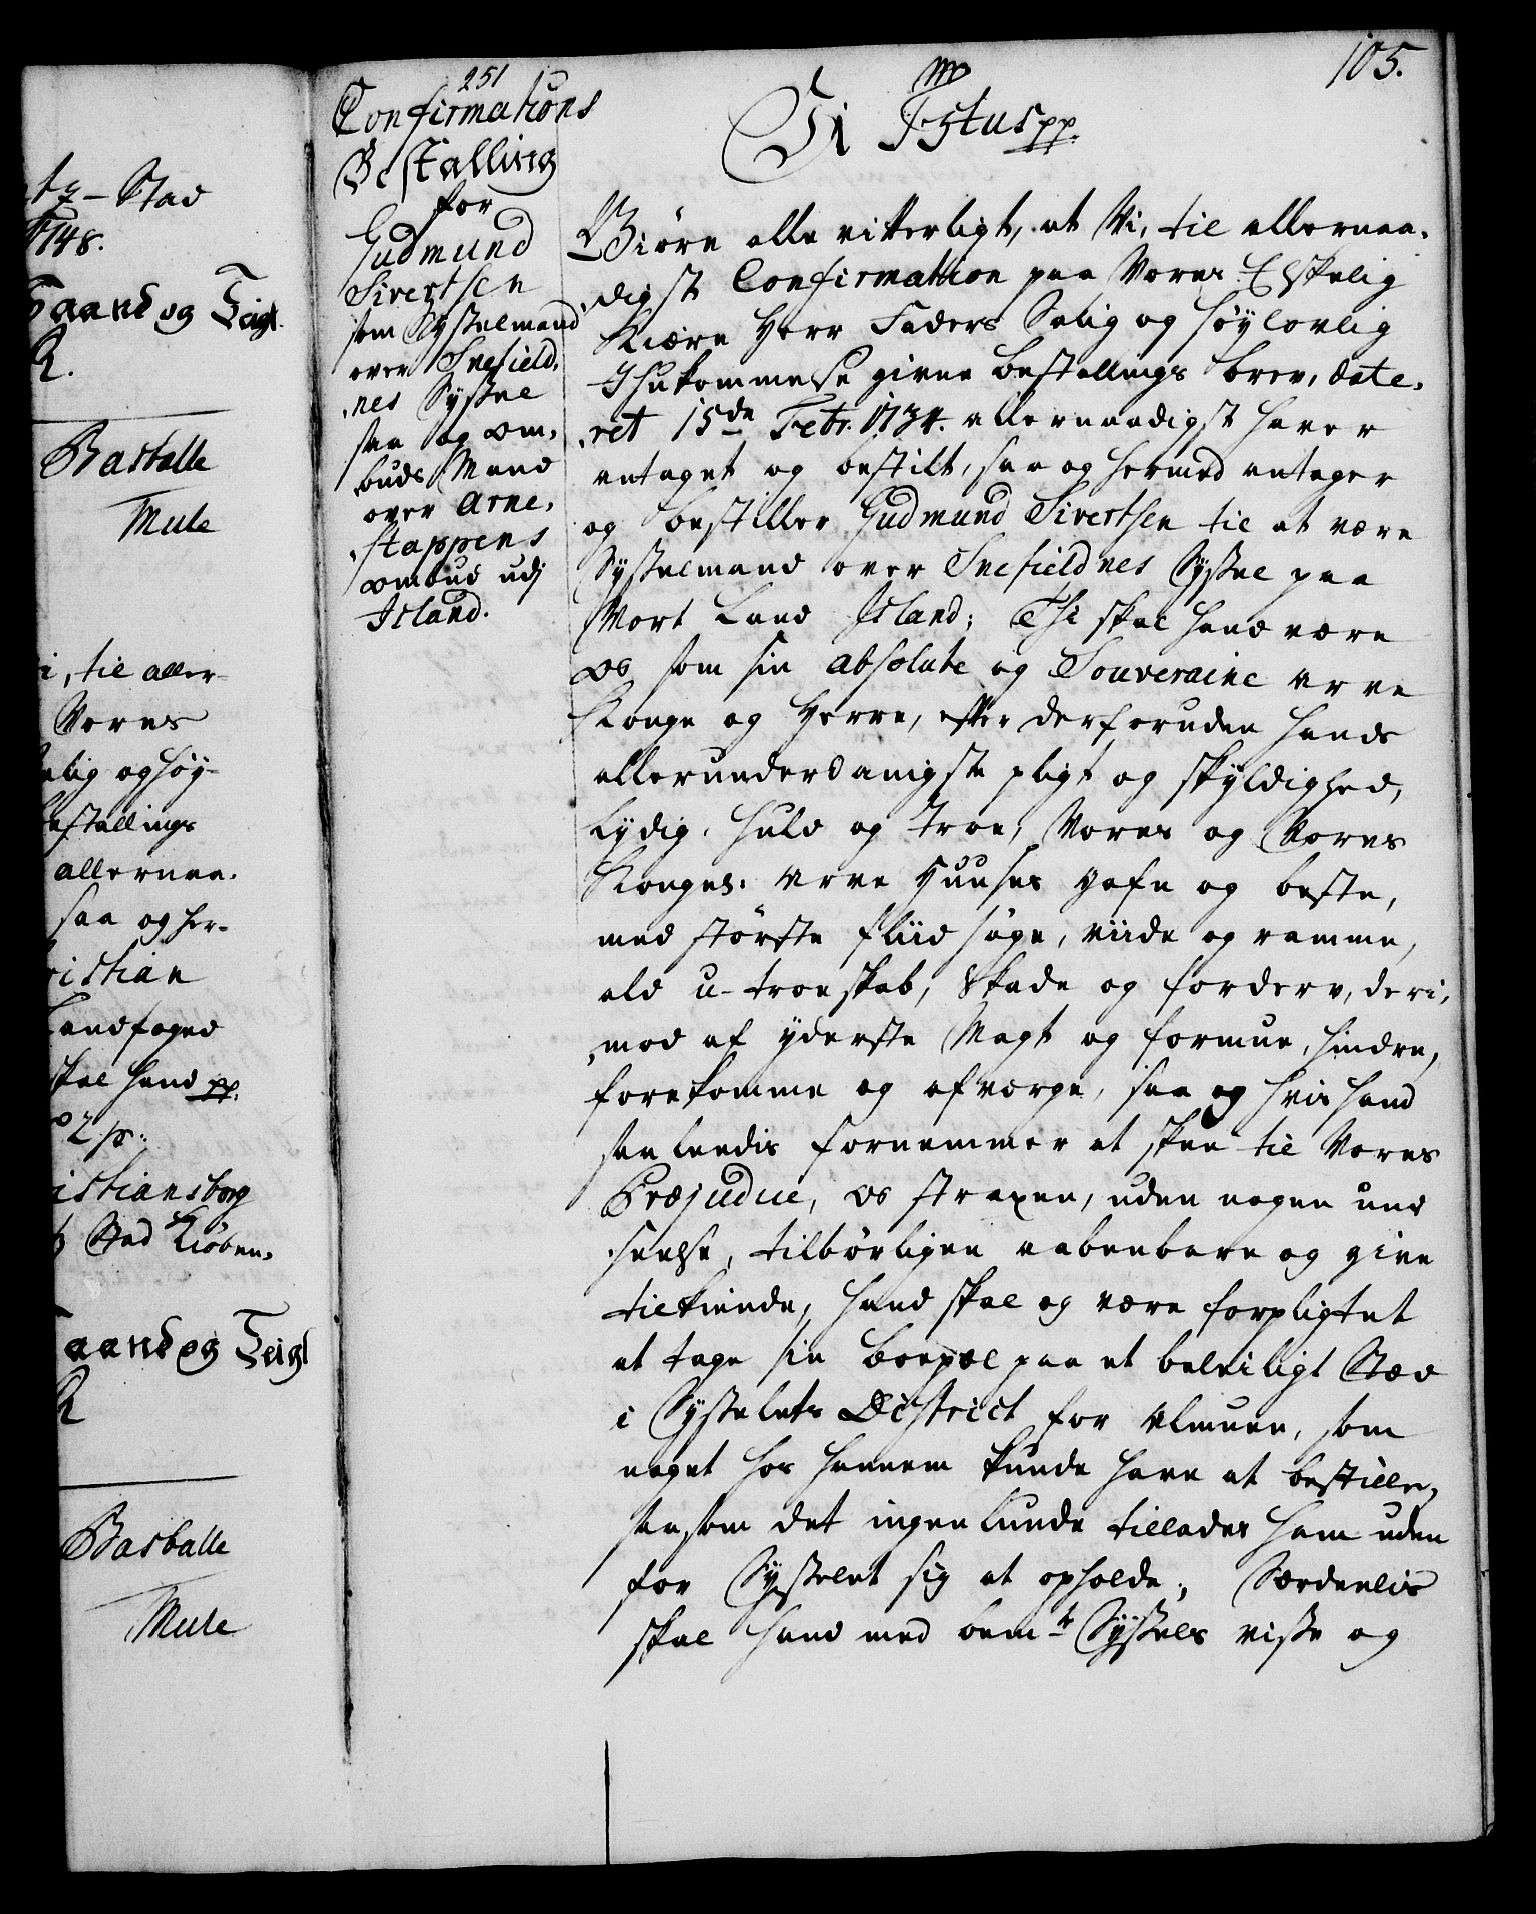 tz-Stad
1748.
Haand og Seigl.
R.
Bartholle
Mule
i, til aller-
Vores
elig og høy-
estallings
allernaa-
saa og her-
ristian
Landfoged
skal hand pp.
2 p:
istiansborg
Stad Kiøben-
aand og Seigl
R
Bartholle
Mule
105.
251
Confirmations
Bestalling
for
Gudmund
Sivertsen
som Sysselmand
over Snefield,
,nes Syssel
saa og om,
,buds Mand
over Arne,
,stappens
ombud udj
Island.
Vi Fstus pp.
Giøre alle vitterligt, at Vi, til allernaa,
,digst Confirmation paa Vores Elskelig
Kiære Herr Faders Salig og høylovlig
Ihukommelse givne Bestallings brev, date,
,ret 15de Febr. 1734. allernaadigst haver
antaget og bestilt, saa og hermed antager
og bestiller Gudmund Sivertsen til at være
Sysselmand over Snefieldnes Syssel paa
Vort Land Island; Thi skal hand være
os som sin absolute og Souveraine Arve
Konge og Herre, efter derforuden hands
allerunderdanigste pligt og skyldighed,
Lydig, huld og troe, Vores og Vores
Kongel: Arve Huuses gafn og beste,
med største fliid søge, viide og ramme,
ald u-troeskab, skade og forderv, deri,
,mod af yderste Magt og formue, hindre,
forekomme og afværge, saa og hvis hand
saaledis fornemmer at skee til Vores
Præjudice, os straxen, uden nogen und
,seelse, tilbørligen aabenbare og give
tilkiende, hand skal og være forpligtet
at tage sin boepæl paa et beleiligt Stæd
i Sysselets District for Almuen, som
noget hos hannem kunde have at bestille,
saasom det ingenlunde tillades ham uden
for Sysselet sig at opholde; Særdeelis
skal hand med bemte Syssels visse og